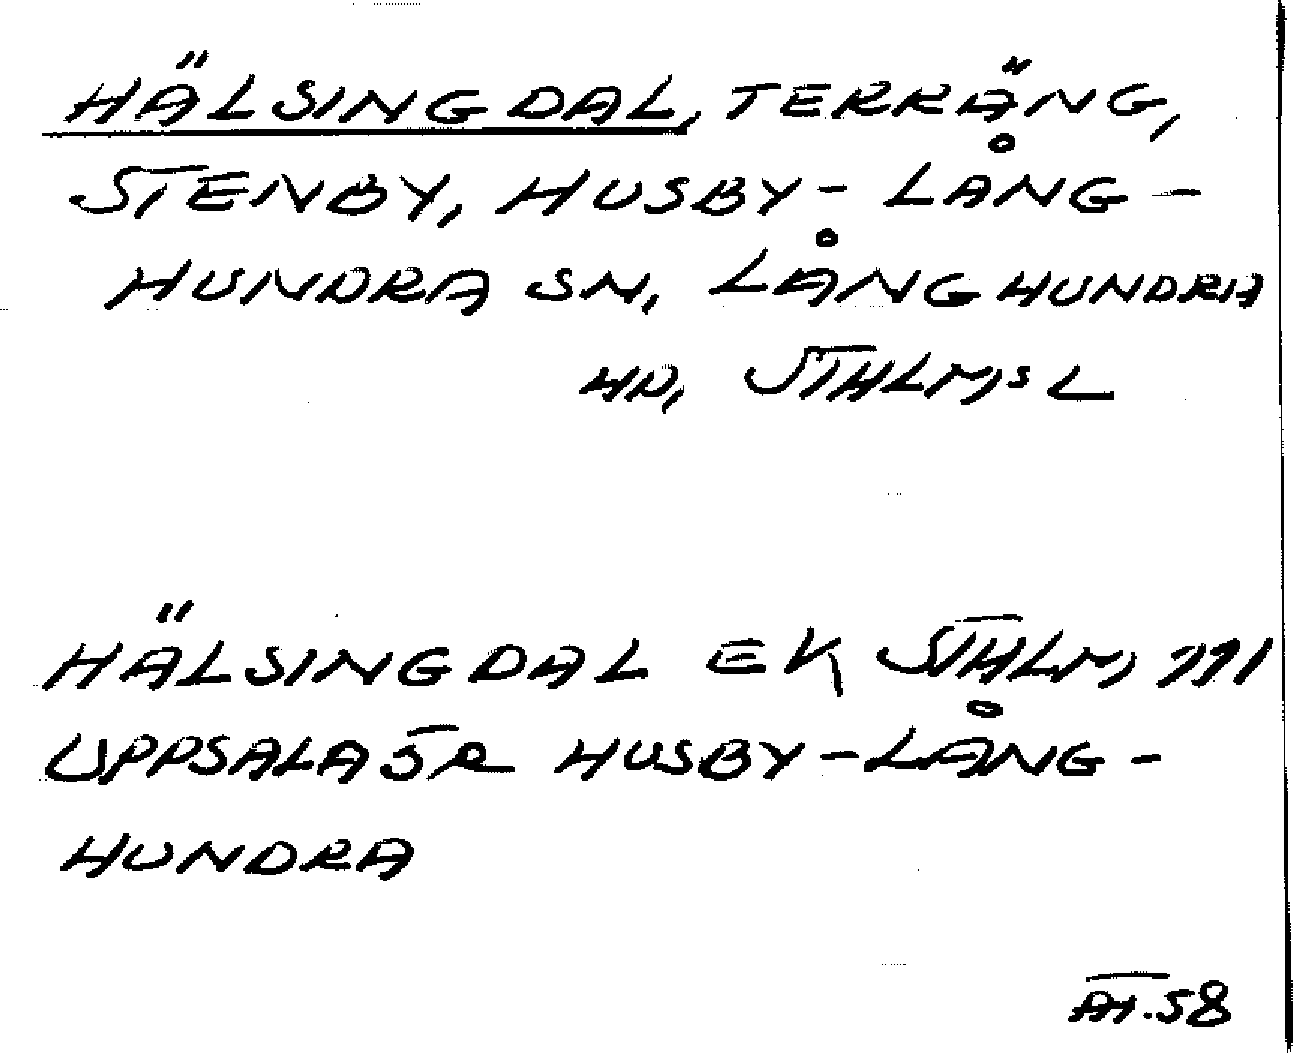 HÄLSINGDAL, TERRÄNG,
STENBY, HUSBY-LÅNG-
HUNDRA SN, LÅNGHUNDRA
HD, STHLM:S L
HÄLSINGDAL EK STHLM, 
UPPSALA HUSBY-LÅNG-
HUNDRA
58